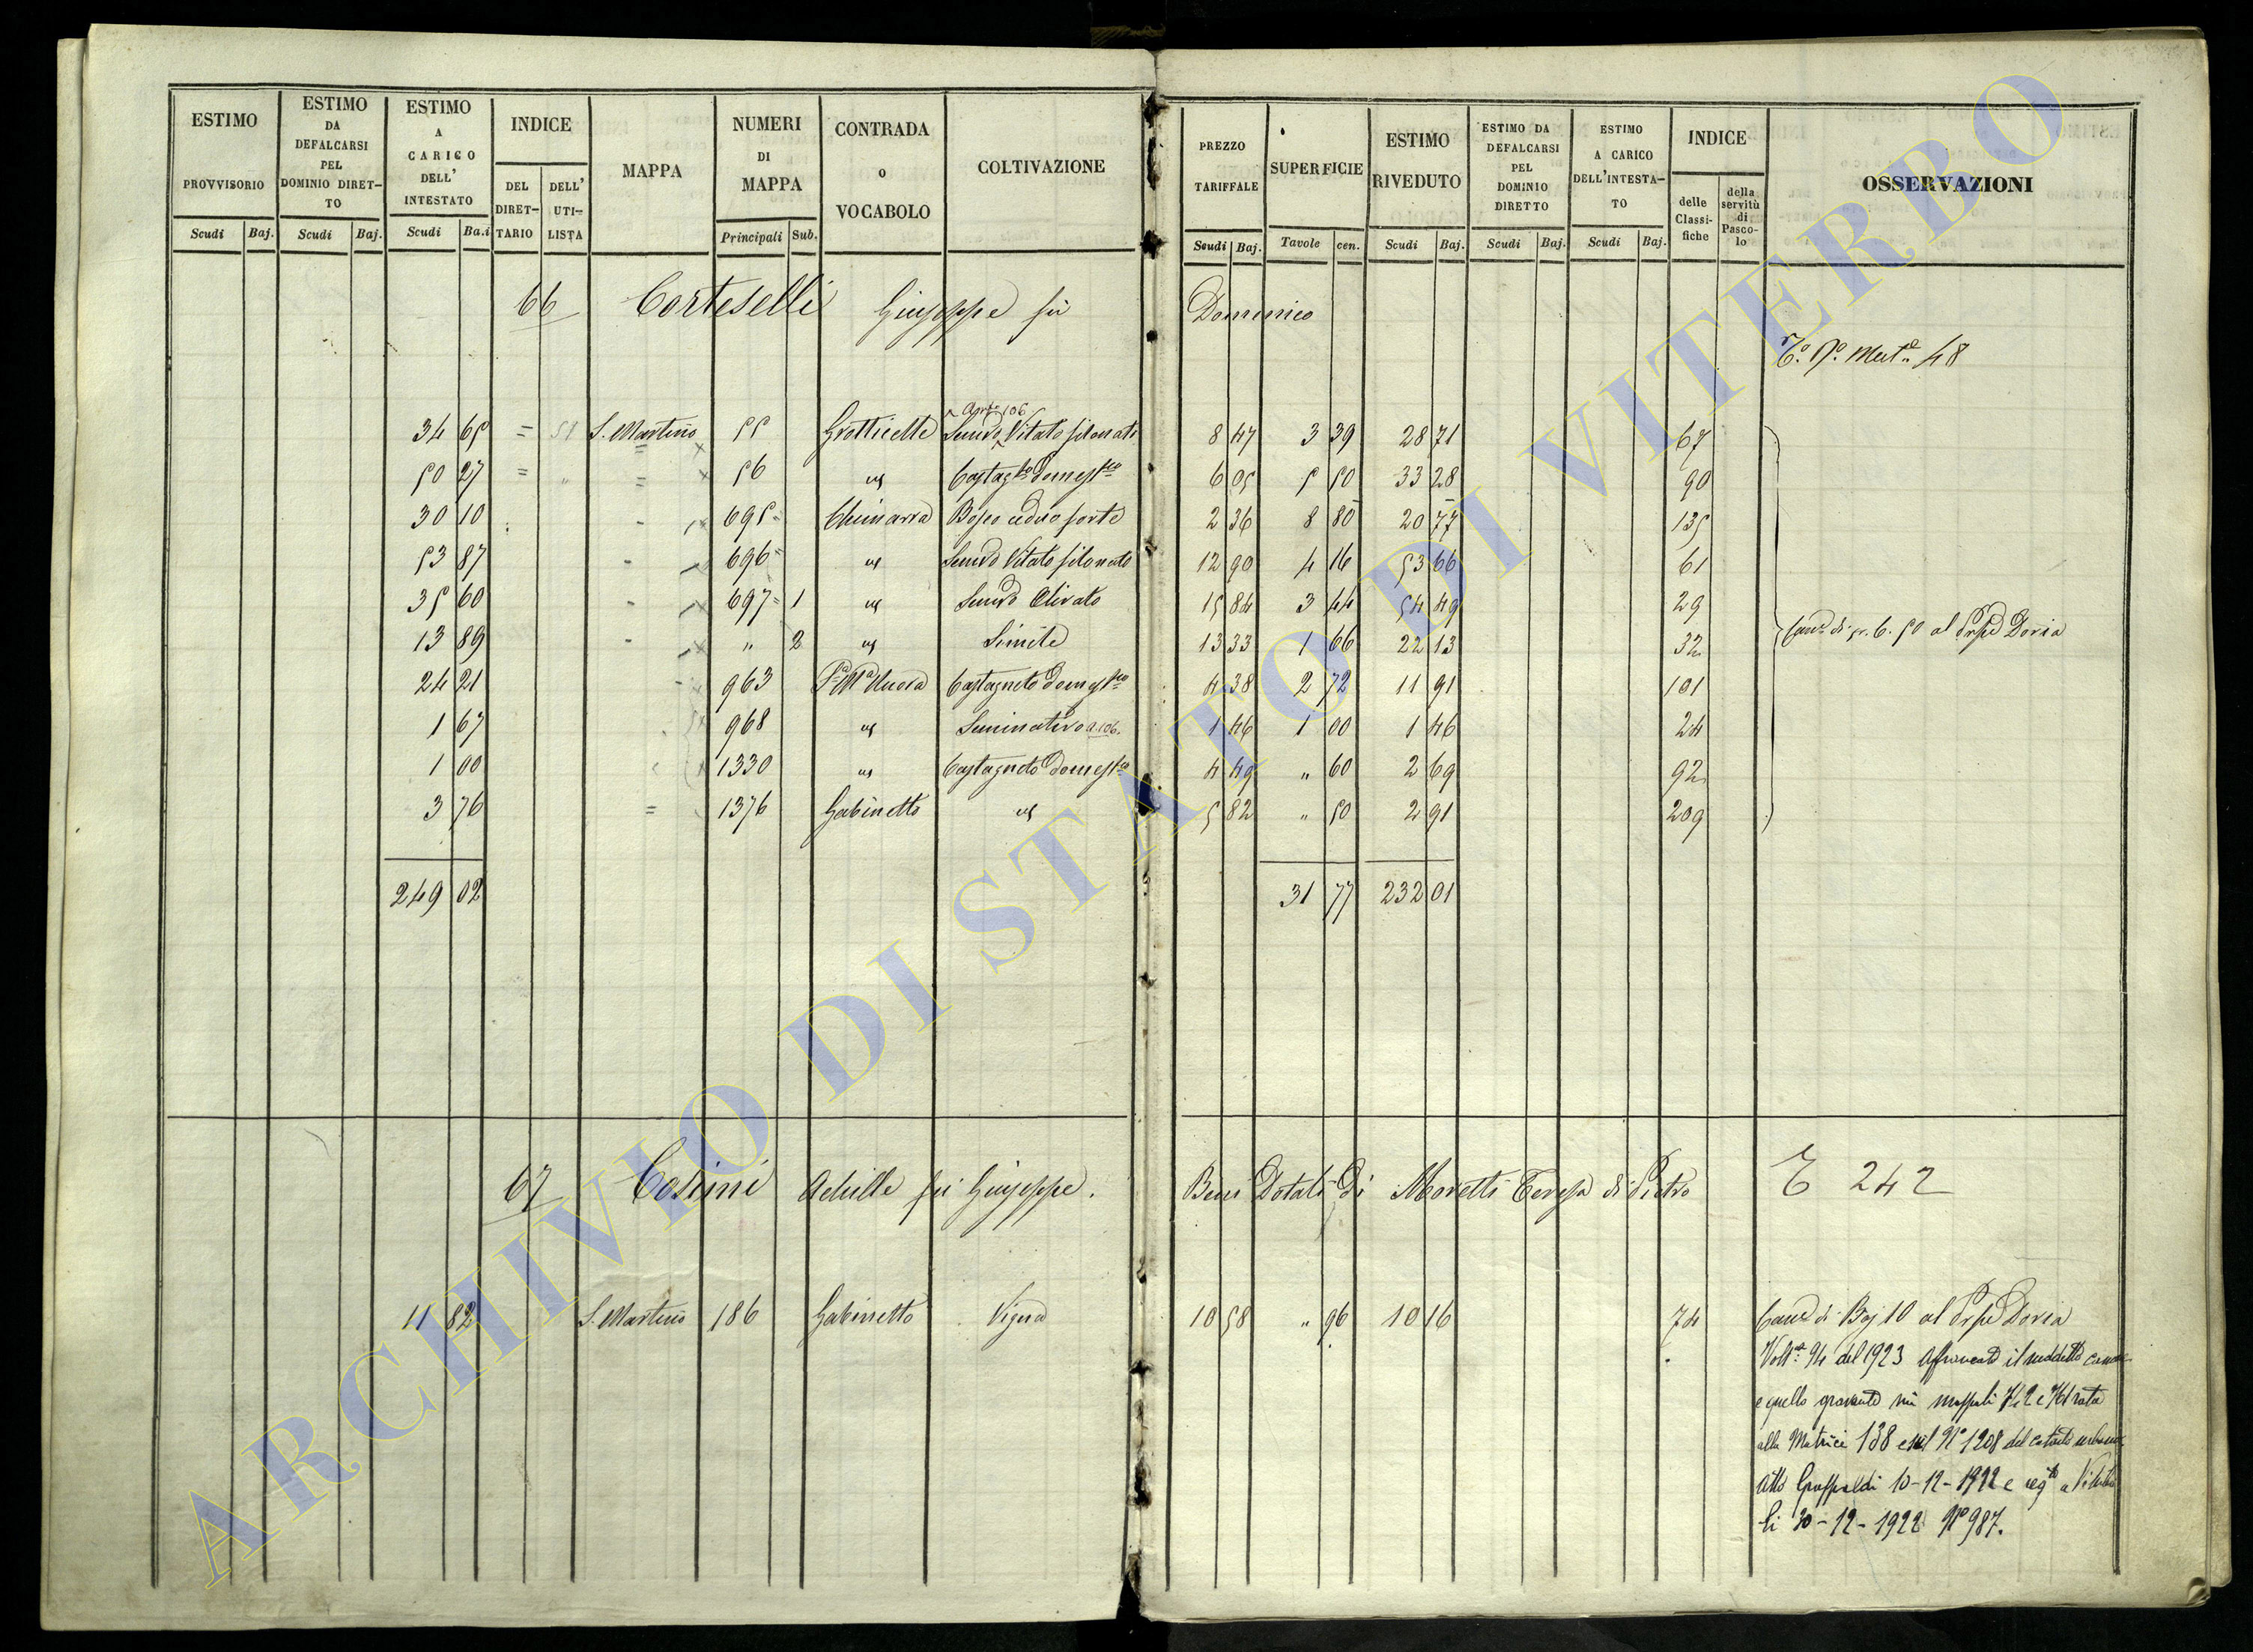 ESTIMO PROVVISORIO Scudi Baj.
ESTIMO DA DEFALCARSI PEL DOMINIO DIRET-TO Scudi Baj.
ESTIMO A CARICO DELL' INTESTATO Scudi Ba.i
INDICE DEL DIRET-TARIO DELL' UTI-LISTA
MAPPA
NUMERI DI MAPPA Principali Sub.
CONTRADA o VOCABOLO
COLTIVAZIONE
PREZZO TARIFFALE Scudi Baj.
SUPERFICIE Tavole cen.
ESTIMO RIVEDUTO Scudi Baj.
ESTIMO DA DEFALCARSI PEL DOMINIO DIRETTO Scudi Baj.
ESTIMO A CARICO DELL'INTESTA-TO Scudi Baj.
INDICE delle Classi-fiche della servitù di Pasco-lo
OSSERVAZIONI
66 Corteselli Giuseppe fu Domenico
48
106
34 65 = 51 S. Martino = 55 Grotticelle Semvo Vitato filonato 8 47 3 39 28 71 67
50 27 = " = 56 Castagto Domestco 6 05 5 50 33 28 90
30 10 695 Chimarra Bosco ceduo forte 2 36 8 80 20 77 135
53 87 696 Semvo Vitato filonato 12 90 4 16 53 66 61
35 60 697 1 Semvo Olivato 15 84 3 44 54 49 29
13 89 " 2 Simile 13 33 1 66 22 13 32 di 6. 50 al Doria
24 21 963 Castagneto Domestco 4 38 2 72 11 91 101
1 67 968 Seminativo a.106. 1 46 1 00 1 46 24
1 00 1330 Castagneto Domestco 4 49 " 60 2 69 92
3 76 = 1376 Gabinetto 5 82 " 50 2 91 209
249 02 31 77 232 01
67 Cosimi Achille fu Giuseppe. Beni Dotali di Moretti Teresa di Pietro 242
11 82 S. Martino 186 Gabinetto Vigna 10 58 " 96 10 16 74 di Baj 10 al Doria
94 del 1923 il suddetto
e quello
alla Matrice 138 N° 1208 del catasto urbano
Atto 10-12-1922 e a Viterbo
li 30-12-1922 N° 987.
ARCHIVIO DI STATO DI VITERBO